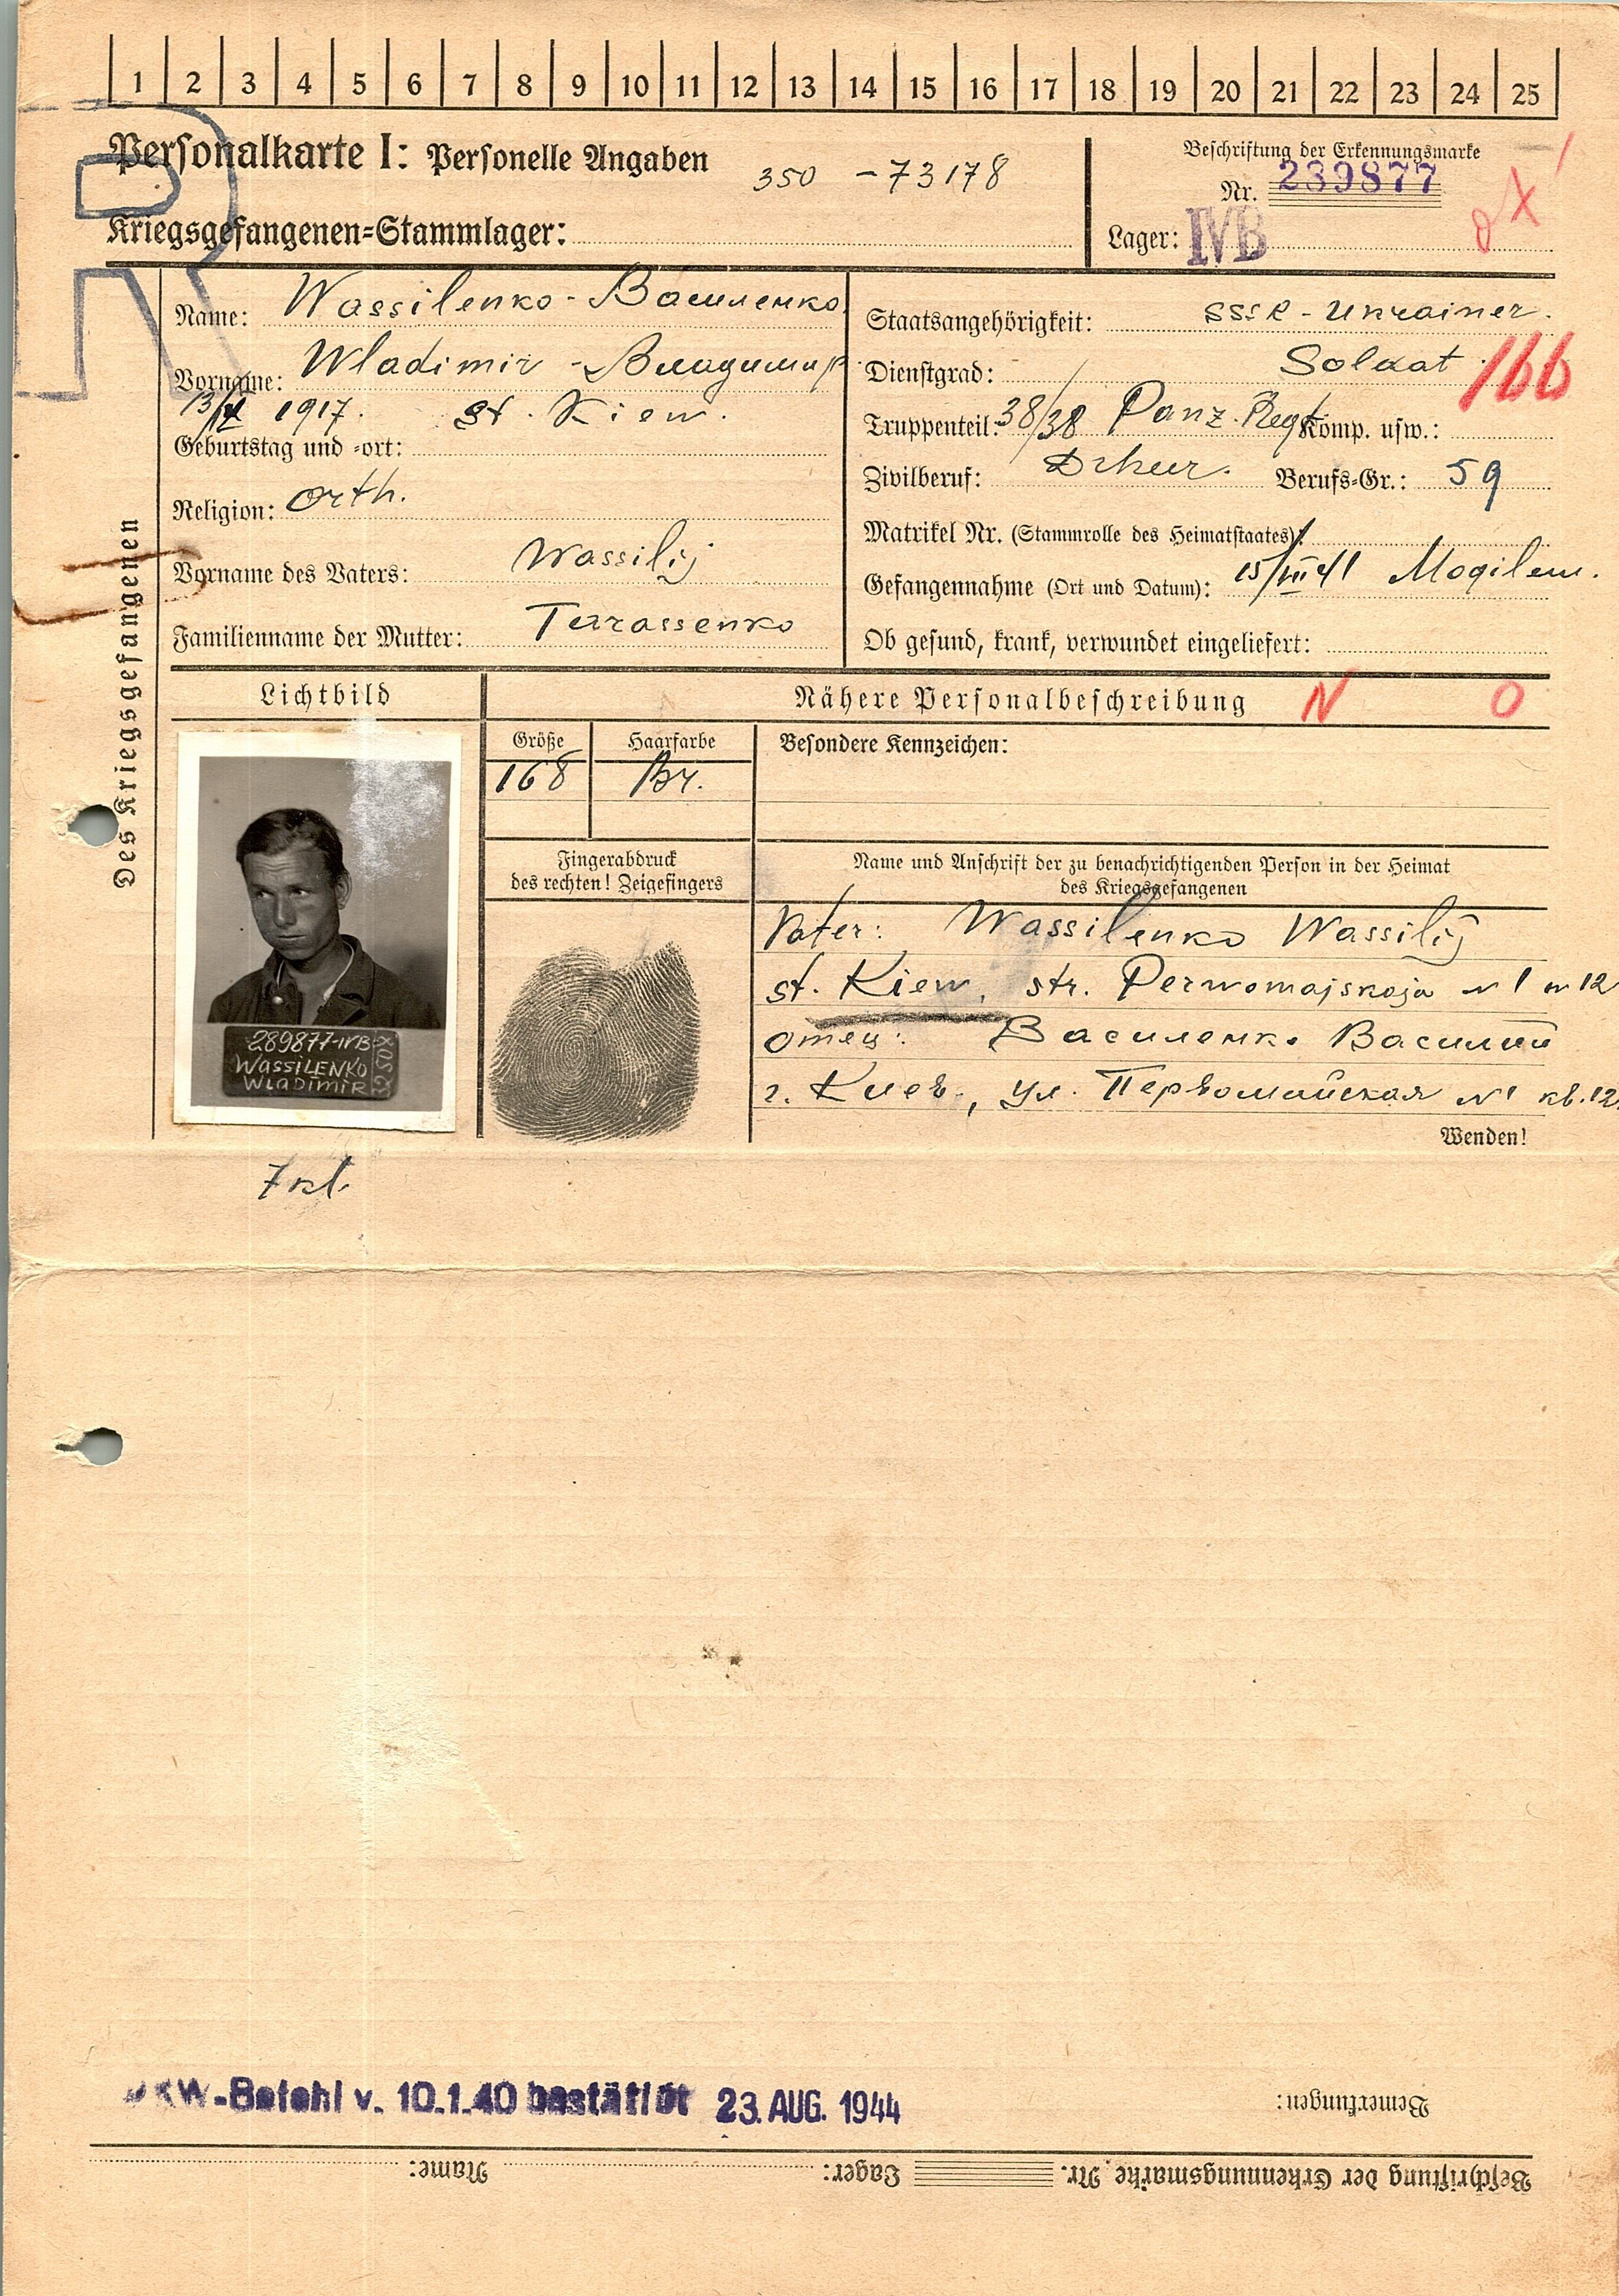 1 2 3 4 5 6 7 8 9 10 11 12 13 14 15 16 17 18 19 20 21 22 23 24 25
Personalkarte I: Personelle Angaben
350 - 73178
Kriegsgefangenen-Stammlager:
Beschriftung der Erkennungsmarke
Nr. 289877
Lager: IVB
Des Kriegsgefangenen
Name: Wassilenko - Василенко
Vorname: Wladimir - Владимир
13/ 1917. st. Kiew.
Geburtstag und -ort:
Religion: Orth.
Vorname des Vaters: Wassilij
Familienname der Mutter: Terrassenko
Staatsangehörigkeit: SSSR - Ukrainer.
Dienstgrad: Soldat
166
Truppenteil: 38/38 Panz. Regt Komp. usw.:
Zivilberuf: Dreher. Berufs-Gr.: 59
Matrikel Nr. (Stammrolle des Heimatstaates):
Gefangennahme (Ort und Datum): 15/VII 41 Mogilew.
Ob gesund, krank, verwundet eingeliefert:
Lichtbild
Nähere Personalbeschreibung N O
Größe Haarfarbe
168 Br.
Besondere Kennzeichen:
Fingerabdruck
des rechten! Zeigefingers
Name und Anschrift der zu benachrichtigenden Person in der Heimat
des Kriegsgefangenen
Vater: Wassilenko Wassilij
st. Kiew, str. Perwomajskaja N 1 w 12
Отец: Василенко Василий
г. Киев, ул. Первомайская N 1 кв. 12
Wenden!
289877-IVB
WASSILENKO
WLADIMIR
7 kl.
OKW-Befehl v. 10.1.40 bestätigt 23. AUG. 1944
Bemerkungen:
Beschriftung der Erkennungsmarke Nr. Lager: Name: